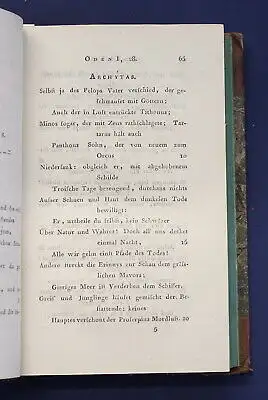 ODEN I, 28. 65
ARCHYTAS.
Selbst ja des Pelops Vater verschied, der ge-
schmauset mit Göttern;
Auch der in Luft entrückte Tithonus;
Minos sogar, der mit Zeus rathschlagete; Tar-
tarus hält auch
Panthous Sohn, der von neuem zum
Orcus 10
Niedersank: obgleich er, mit abgehobenem
Schilde
Troische Tage bezeugend, durchaus nichts
Außer Sehnen und Haut dem dunkelen Tode
bewilligt;
Er, urtheile du selbst, kein Schwätzer
Über Natur und Wahres! Doch all uns decket
einmal Nacht, 15
Alle wir gehn einst Pfade des Todes!
Andere streckt die Erinnys zur Schau dem gräs-
lichen Mavors;
Gieriges Meer ist Verderben dem Schiffer.
Greis' und Jünglinge häuft gemischt der Be-
stattende; keines
Hauptes verschont der Proserpina Mordlust. 20
5